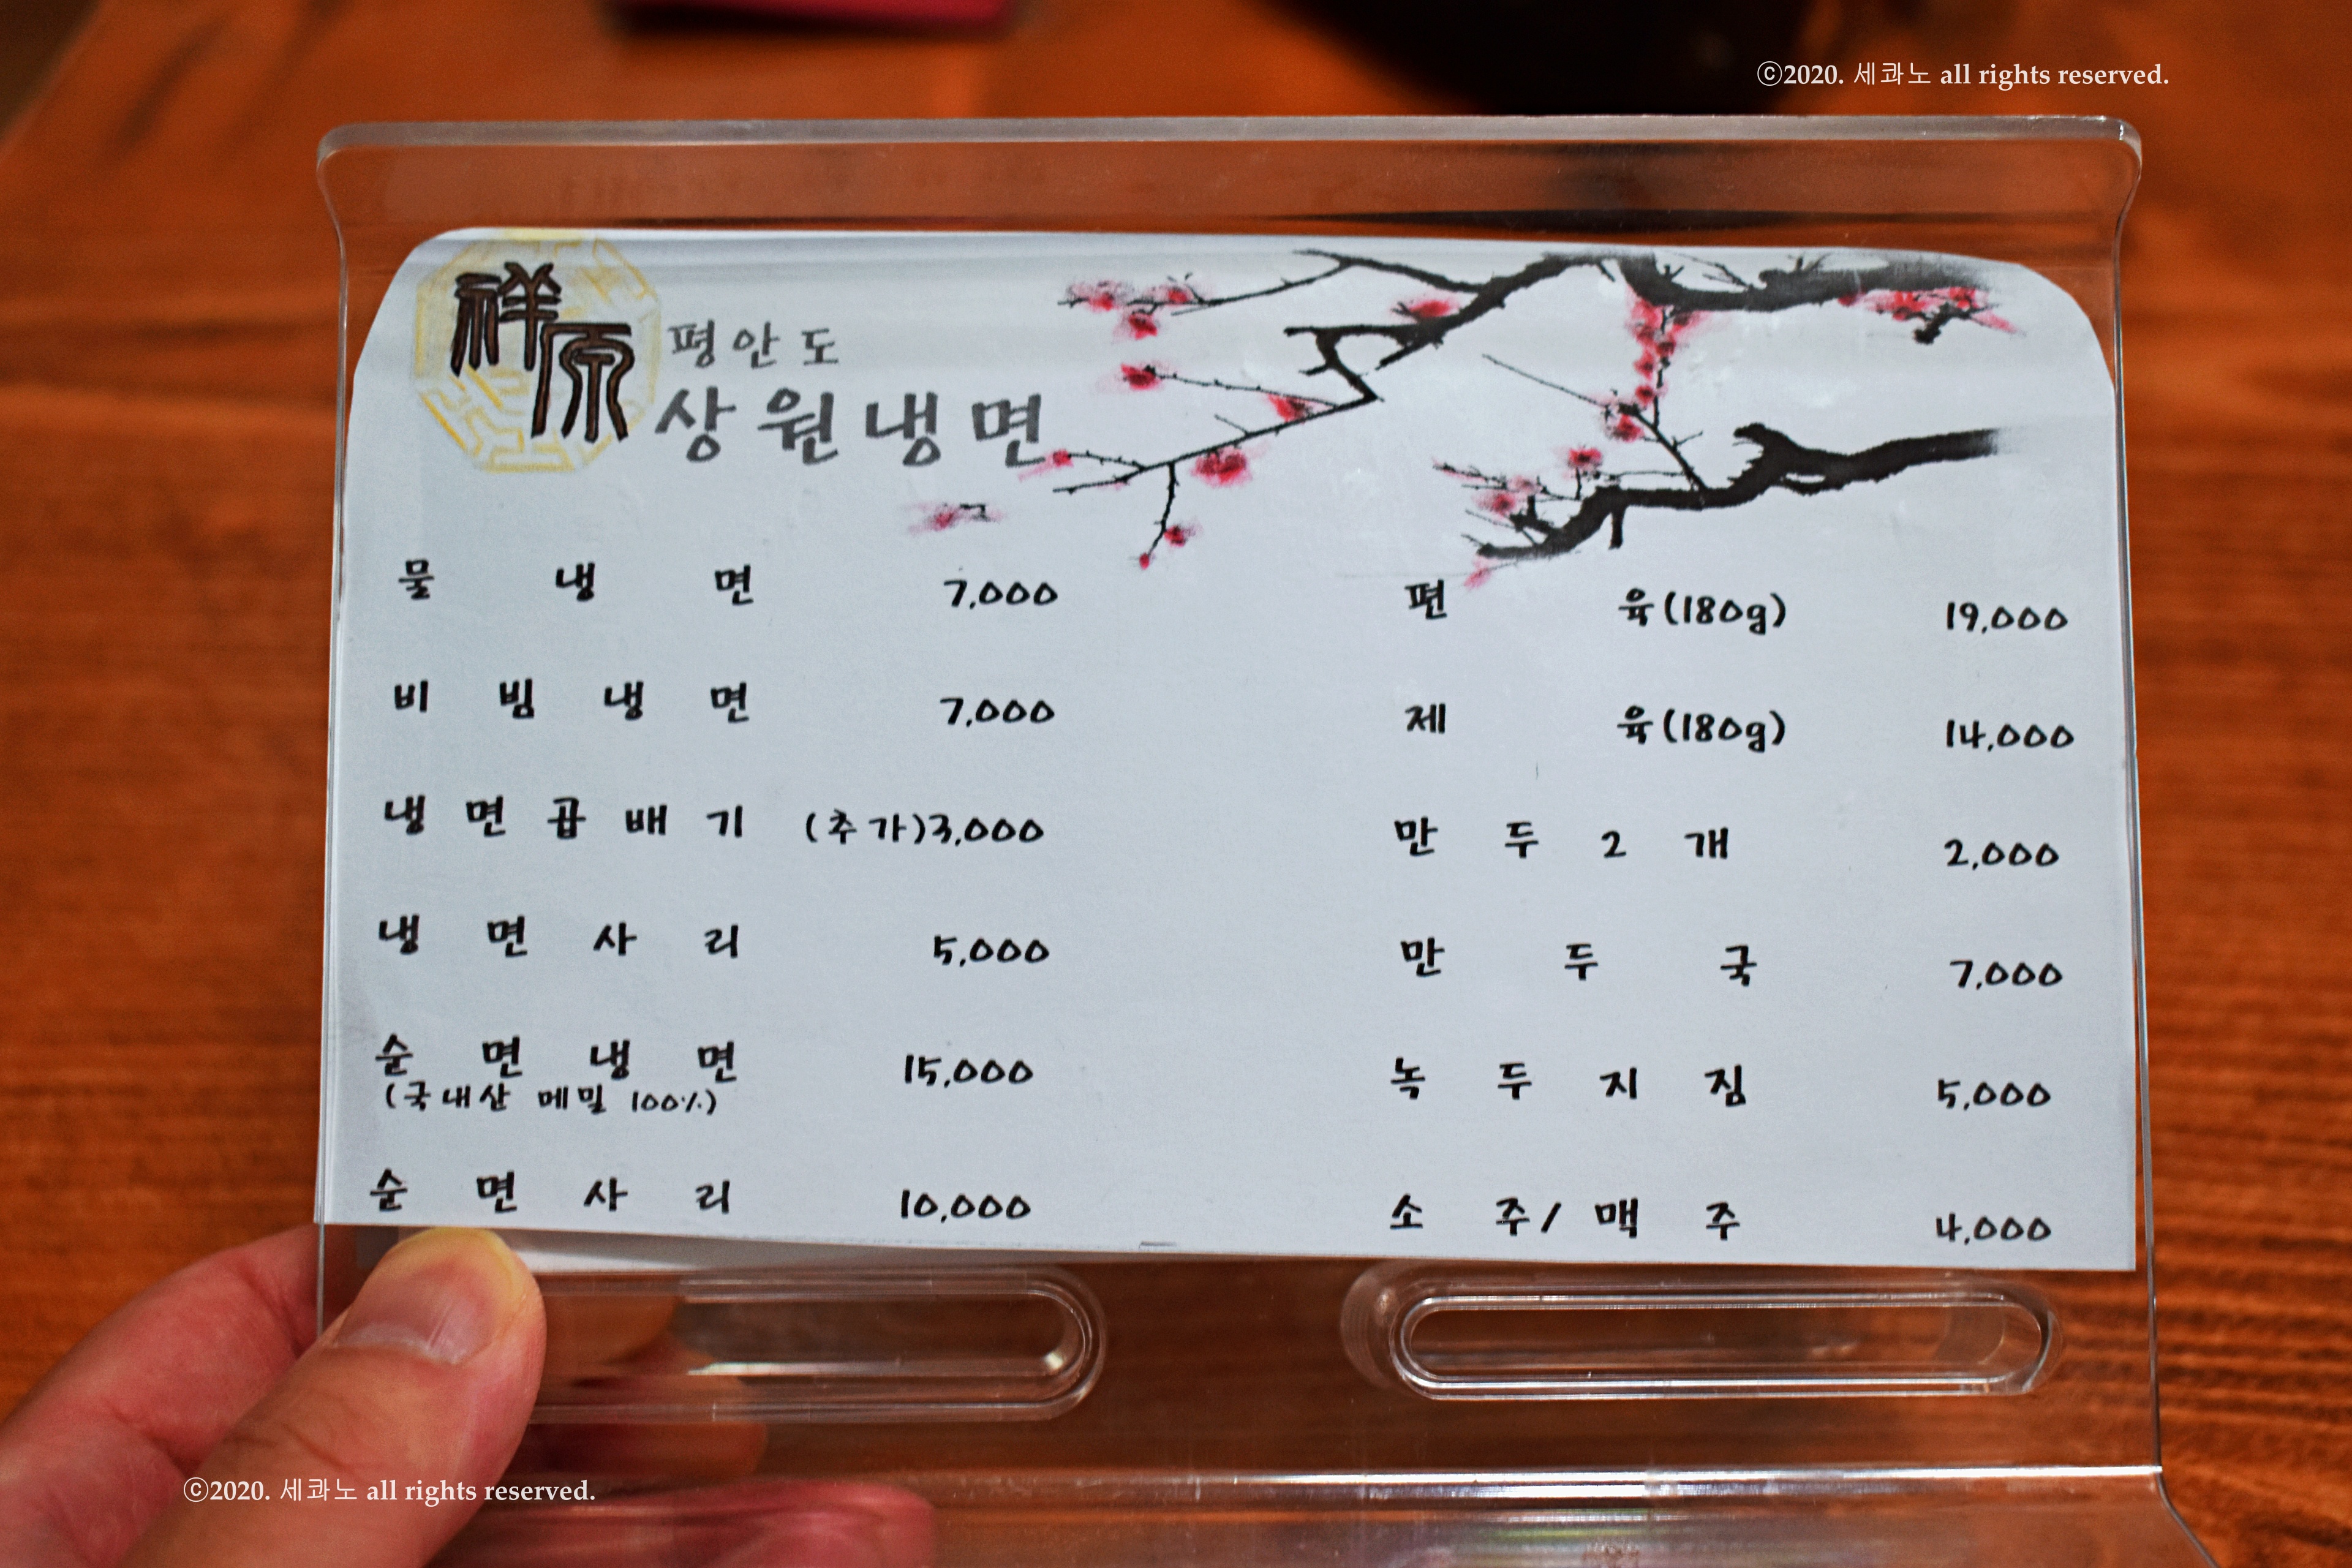 ⓒ2020. 세콰노 all rights reserved.
祥原
평안도
상원냉면
물냉면 7,000
비빔냉면 7,000
냉면곱배기 (추가)3,000
냉면사리 5,000
순면냉면 15,000
(국내산 메밀 100%)
순면사리 10,000
편육(180g) 19,000
제육(180g) 14,000
만두2개 2,000
만두국 7,000
녹두지짐 5,000
소주/맥주 4,000
ⓒ2020. 세콰노 all rights reserved.